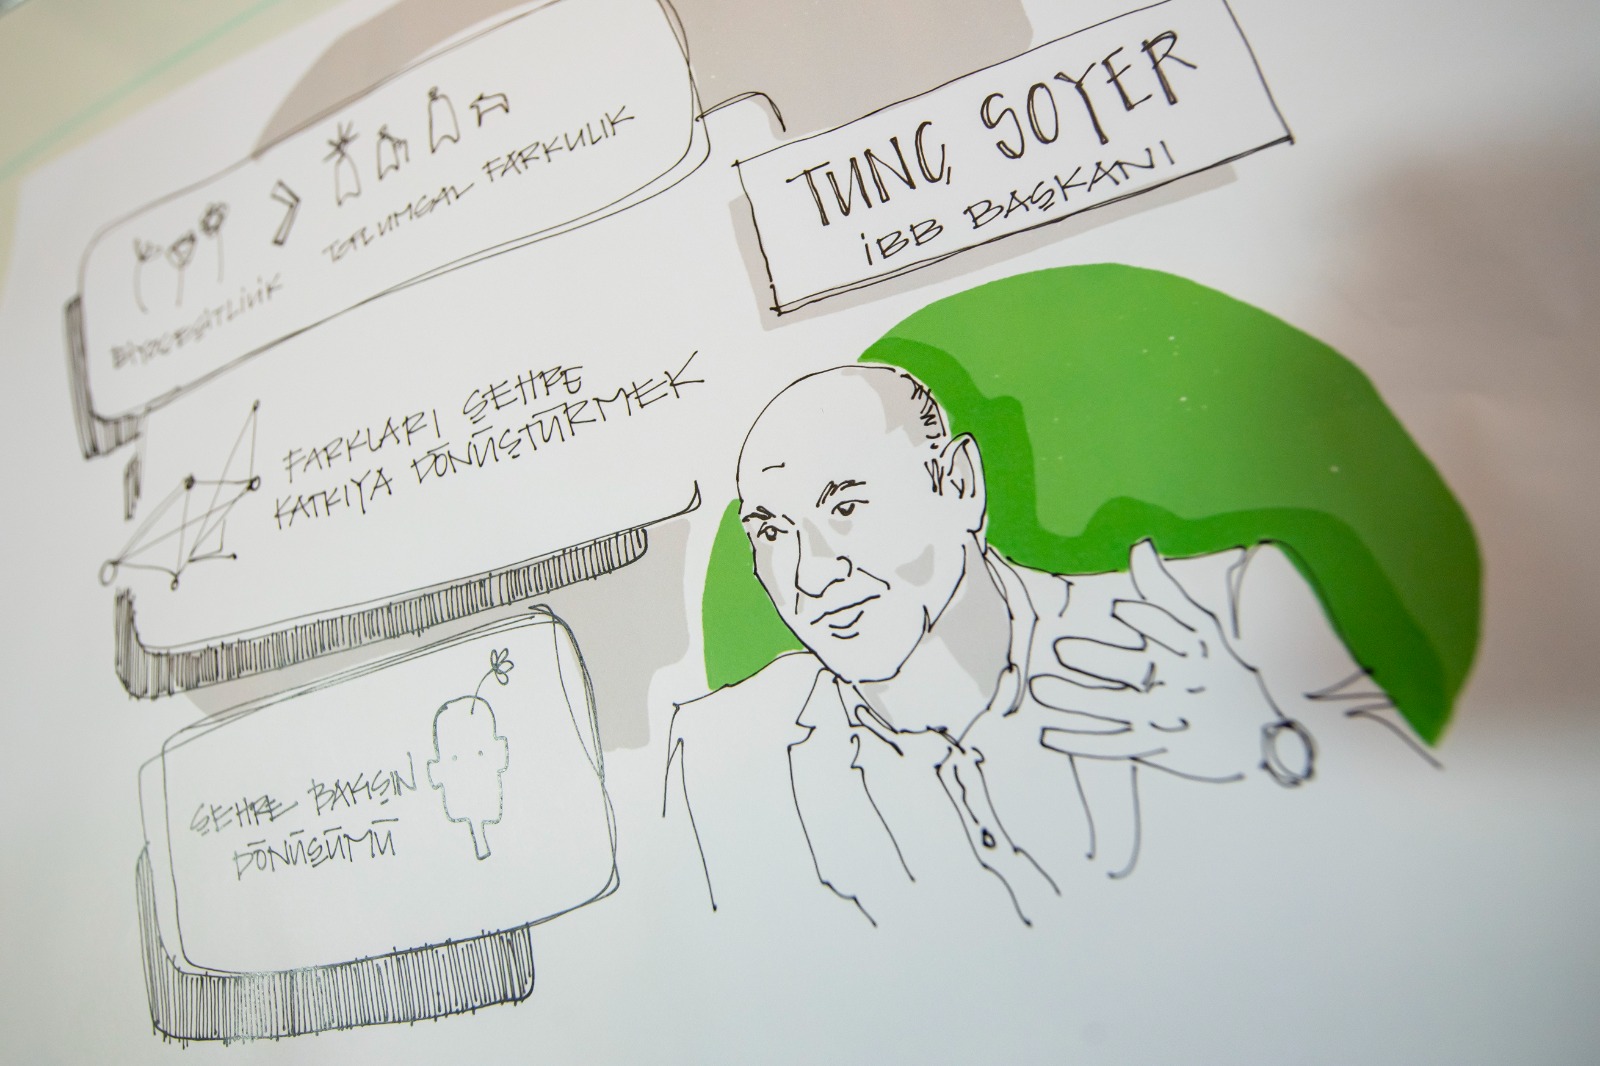 TUNÇ SOYER
İBB BAŞKANI
BİYOÇEŞİTLİLİK
TOPLUMSAL FARKLILIK
FARKLARI ŞEHRE
KATKIYA DÖNÜŞTÜRMEK
ŞEHRE BAKIŞIN
DÖNÜŞÜMÜ